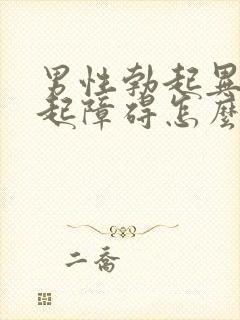 男性勃起異
起障碍怎麼
二喬